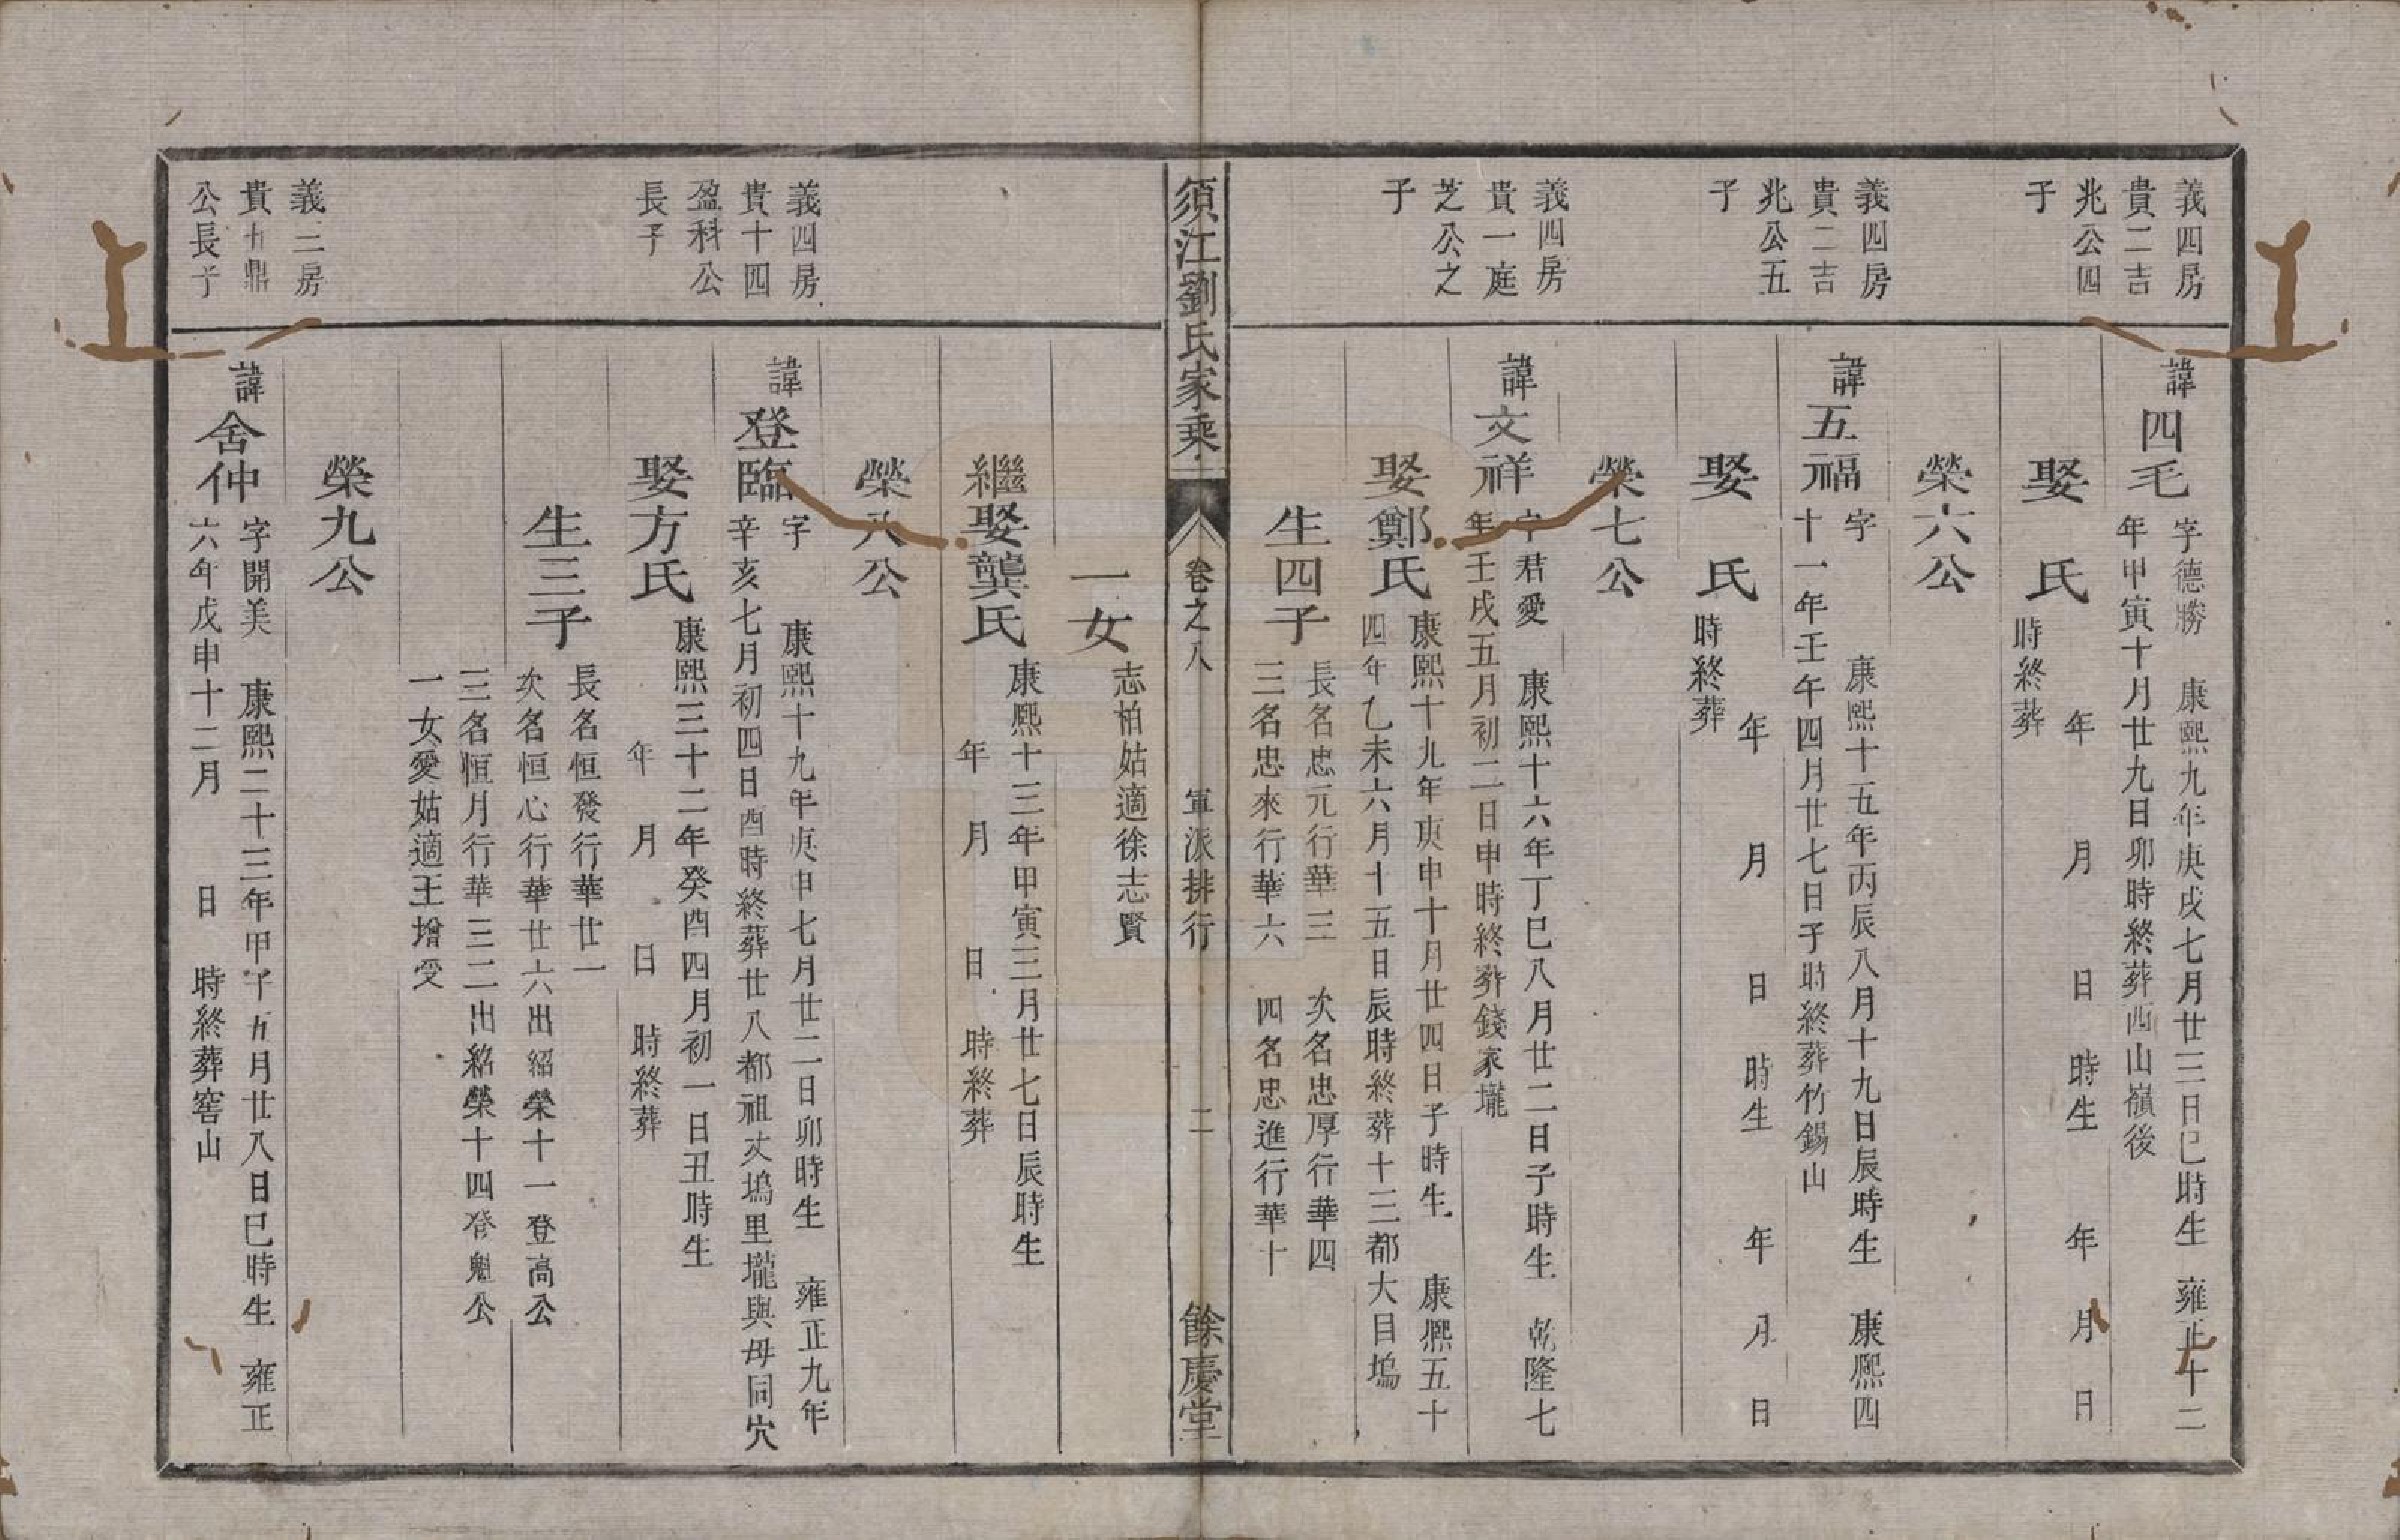 義四房
貴二吉
兆公四
子
諱四毛
字德勝　康熙九年庚戌七月廿三日巳時生　雍正十二
年甲寅十月廿九日卯時終葬西山嶺後
娶　氏
年　月　日　時生　年　月　日
時終葬
榮六公
義四房
貴二吉
兆公五
子
諱五福
字　康熙十五年丙辰八月十九日辰時生　康熙四
十一年壬午四月廿七日子時終葬竹錫山
娶　氏
年　月　日　時生　年　月　日
時終葬
榮七公
義四房
貴一庭
芝公之
子
諱文祥
字君愛　康熙十六年丁巳八月廿二日子時生　乾隆七
年壬戌五月初二日申時終葬錢家壠
娶鄭氏
康熙十九年庚申十月廿四日子時生　康熙五十
四年乙未六月十五日辰時終葬十三都大目塢
生四子
長名忠元行華三　次名忠厚行華四
三名忠來行華六　四名忠進行華十
須江劉氏家乘
卷之八
軍派排行
二
餘慶堂
一女
志柏姑適徐志賢
繼娶龔氏
康熙十三年甲寅三月廿七日辰時生
年　月　日　時終葬
榮八公
義四房
貴十四
盈科公
長子
諱登臨
字　康熙十九年庚申七月廿二日卯時生　雍正九年
辛亥七月初四日酉時終葬廿八都祖丈塢里壠與母同穴
娶方氏
康熙三十二年癸酉四月初一日丑時生
年　月　日　時終葬
生三子
長名恒發行華廿一
次名恒心行華廿六出紹榮十一登高公
三名恒月行華三二出紹榮十四登魁公
一女愛姑適王增受
榮九公
義二房
貴十鼎
公長子
諱舍仲
字開美　康熙二十三年甲子五月廿八日巳時生　雍正
六年戊申十二月　日　時終葬窖山